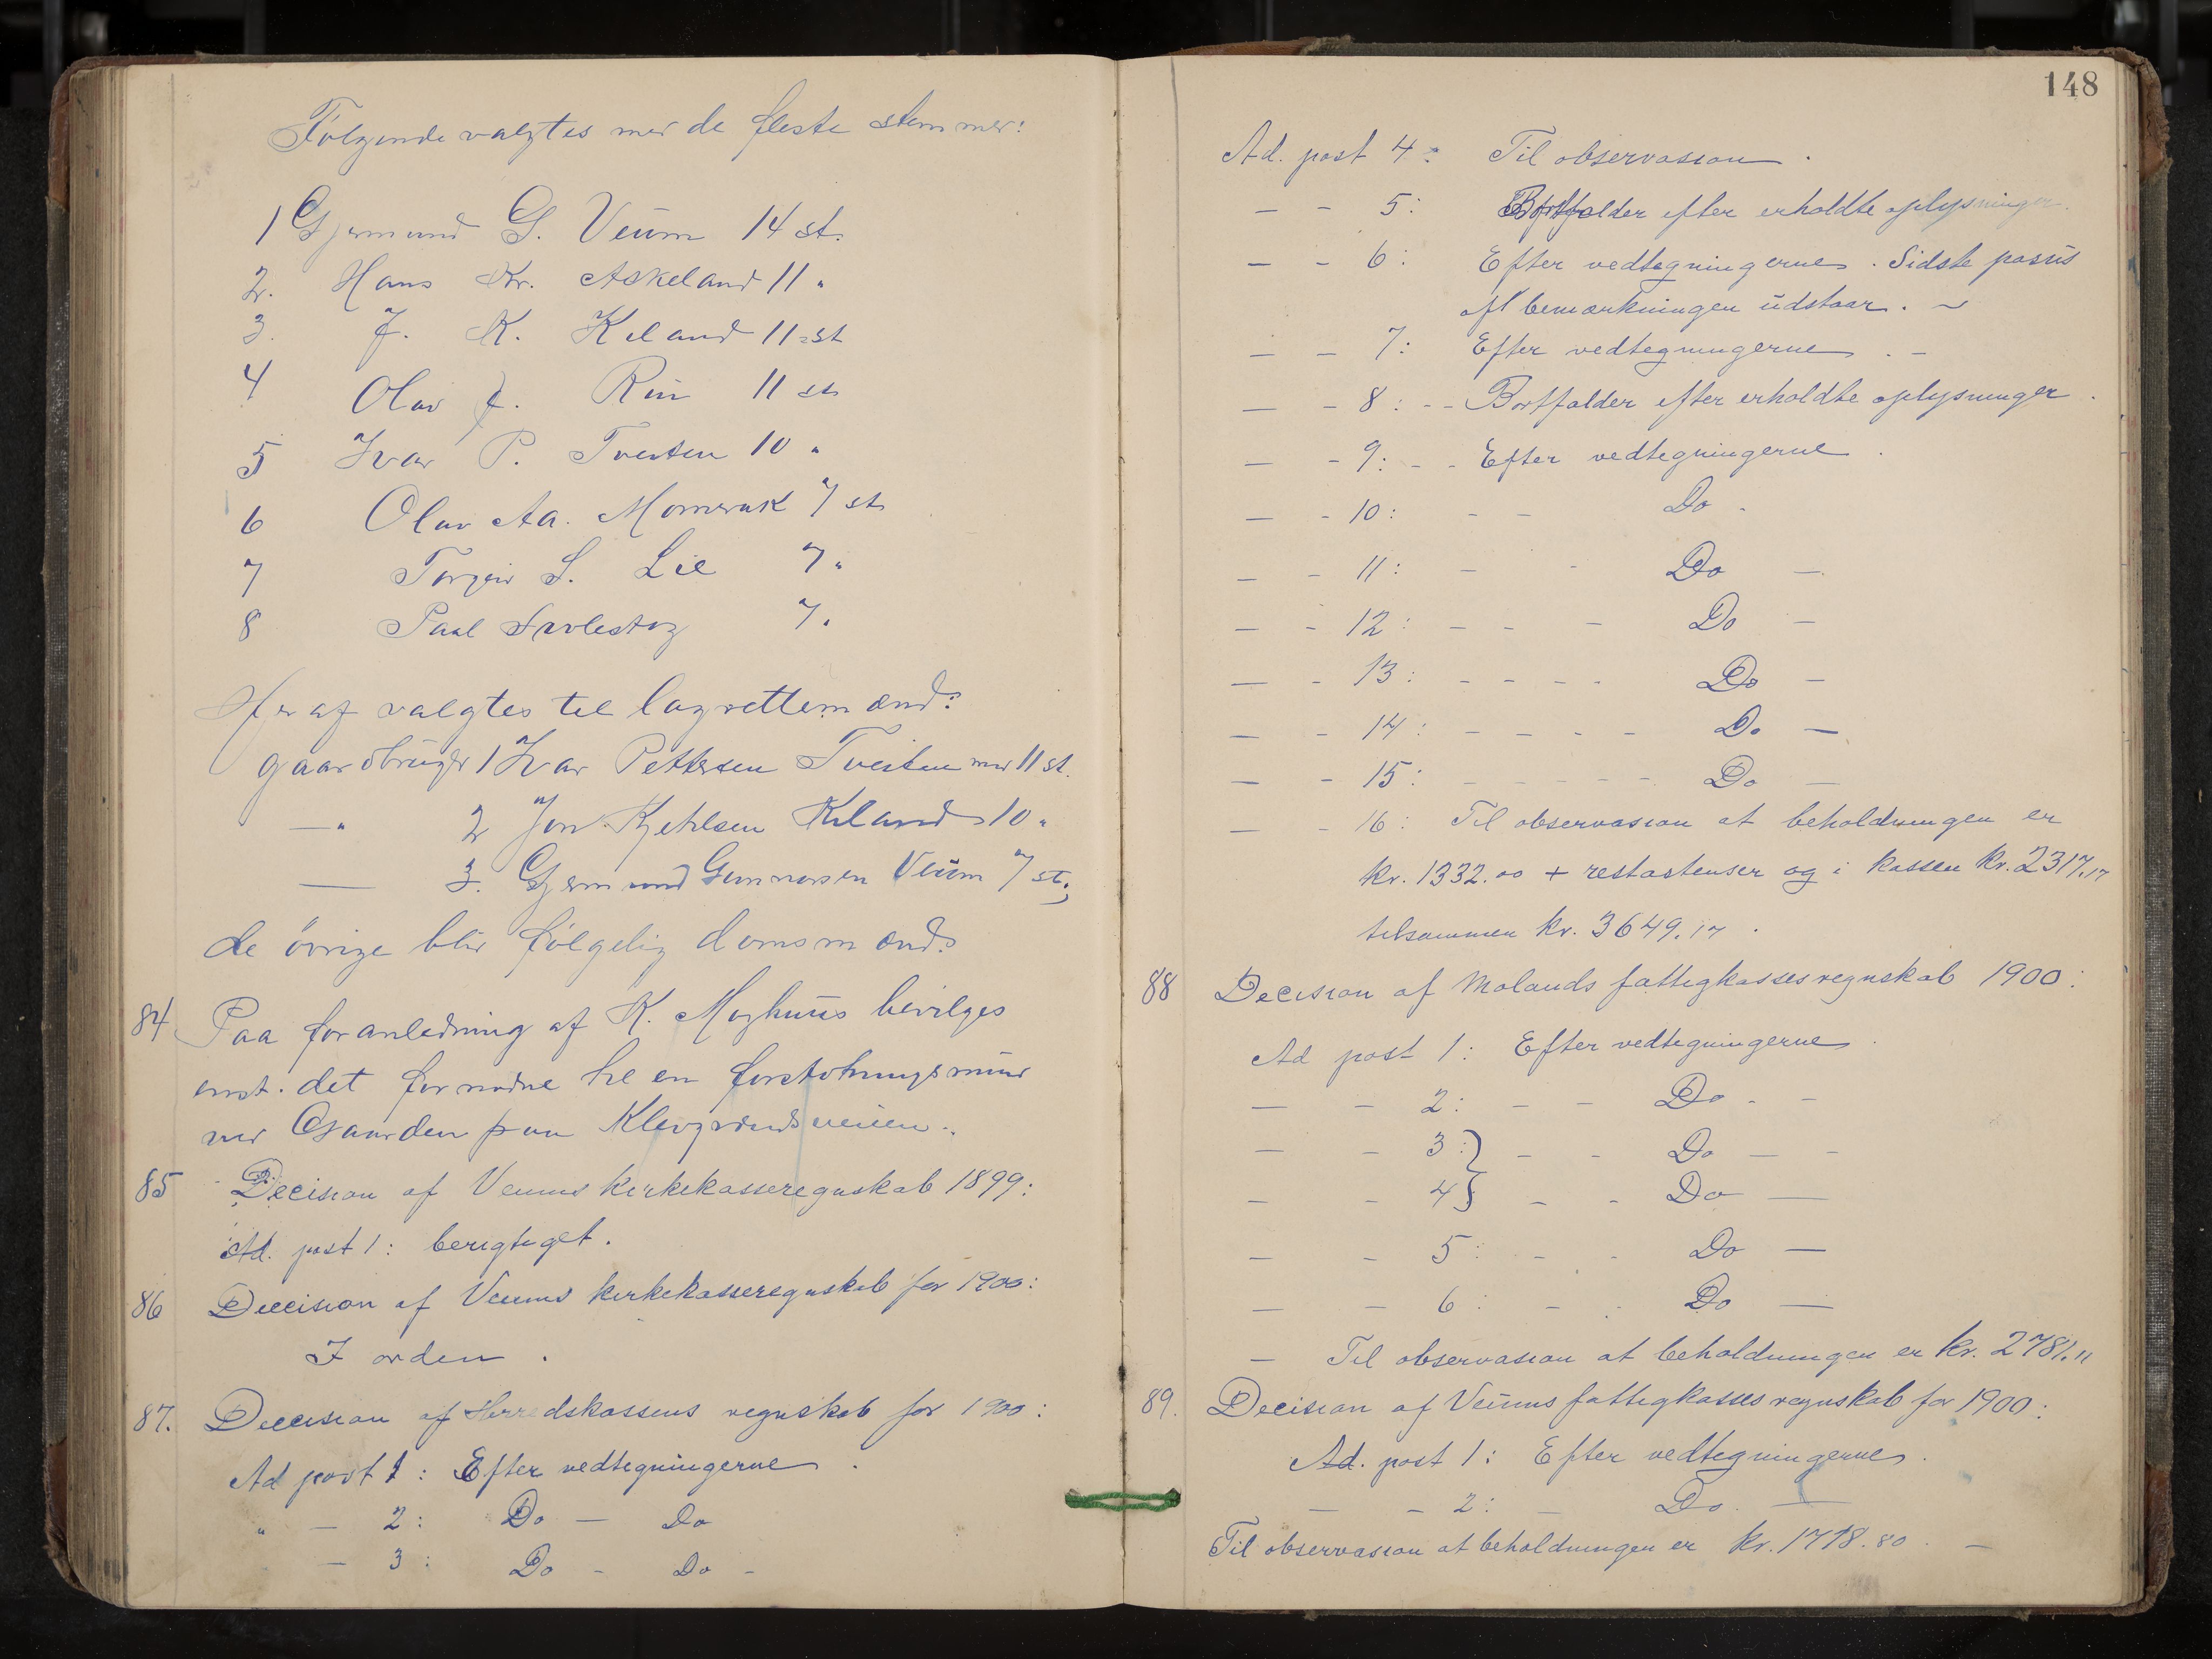 Følgende valgtes med de fleste stemmer:
1 Gjermund G. Veum 14 st.
2. Hans Kr. Askeland 11 "
3. J. K. Keland 11 st
4 Olav J. Rui 11 st
5 Ivar P. Tveiten 10 "
6 Olav Aa. Momrak 7 st
7 Torgeir S. Lie 7 "
8 Paal 7 "
Her af valgtes til lagrettemænd:
gaardbruger 1 Ivar Pettersen Tveiten med 11 st.
—" 2 Jon Kjetilsen Kiland 10 "
— 3. Gjermund Gunnarsen Veum 7 st.;
de övrige blir følgelig domsmænd.
84 Paa foranledning af K. Moghuus bevilges
enst. det fornødne til en forstøtningsmur
ved Gaarden paa Klevgrendsveien.
85 Decision af Veums kirkekasseregnskab 1899:
Ad. post 1: berigtiget.
86 Decision af Veums kirkekasseregnskab for 1900:
I orden.
87. Decision af Herredskassens regnskab for 1900:
Ad post 1: Efter vedtegningerne.
" — 2: Do — Do
— 3: Do - Do -
148
Ad. post 4: Til observasion.
— - 5: Bortfalder efter erholdte oplysninger.
— - 6: Efter vedtegningerne. Sidste pasus
af bemærkningen udstaar. —
— - 7: Efter vedtegningerne. -
— - 8: -- Bortfalder efter erholdte oplysninger.
— - 9: - - Efter vedtegningerne.
— - 10: - - Do -
— - 11: - - Do —
— - 12: - - - Do —
— - 13: - - - - Do —
— - 14: - - - - Do —
— - 15: - - - - - Do —
— - 16: Til observasion at beholdningen er
kr. 1332.00 + restastenser og i kassen kr. 2317.17
tilsammen kr. 3649.17.
88 Decision af Molands fattigkasses regnskab 1900:
Ad post 1: Efter vedtegningerne.
— - 2: - - Do - -
— - 3:} - - Do — -
— - 4} - - Do —
— - 5: - - Do —
— - 6: - - Do —
— Til observasion at beholdningen er kr. 2781.11
89. Decision af Veums fattigkasses regnskab for 1900:
Ad. post 1: Efter vedtegningerne.
— - 2: - Do. —
Til observasion at beholdningen er kr. 1778.80. —